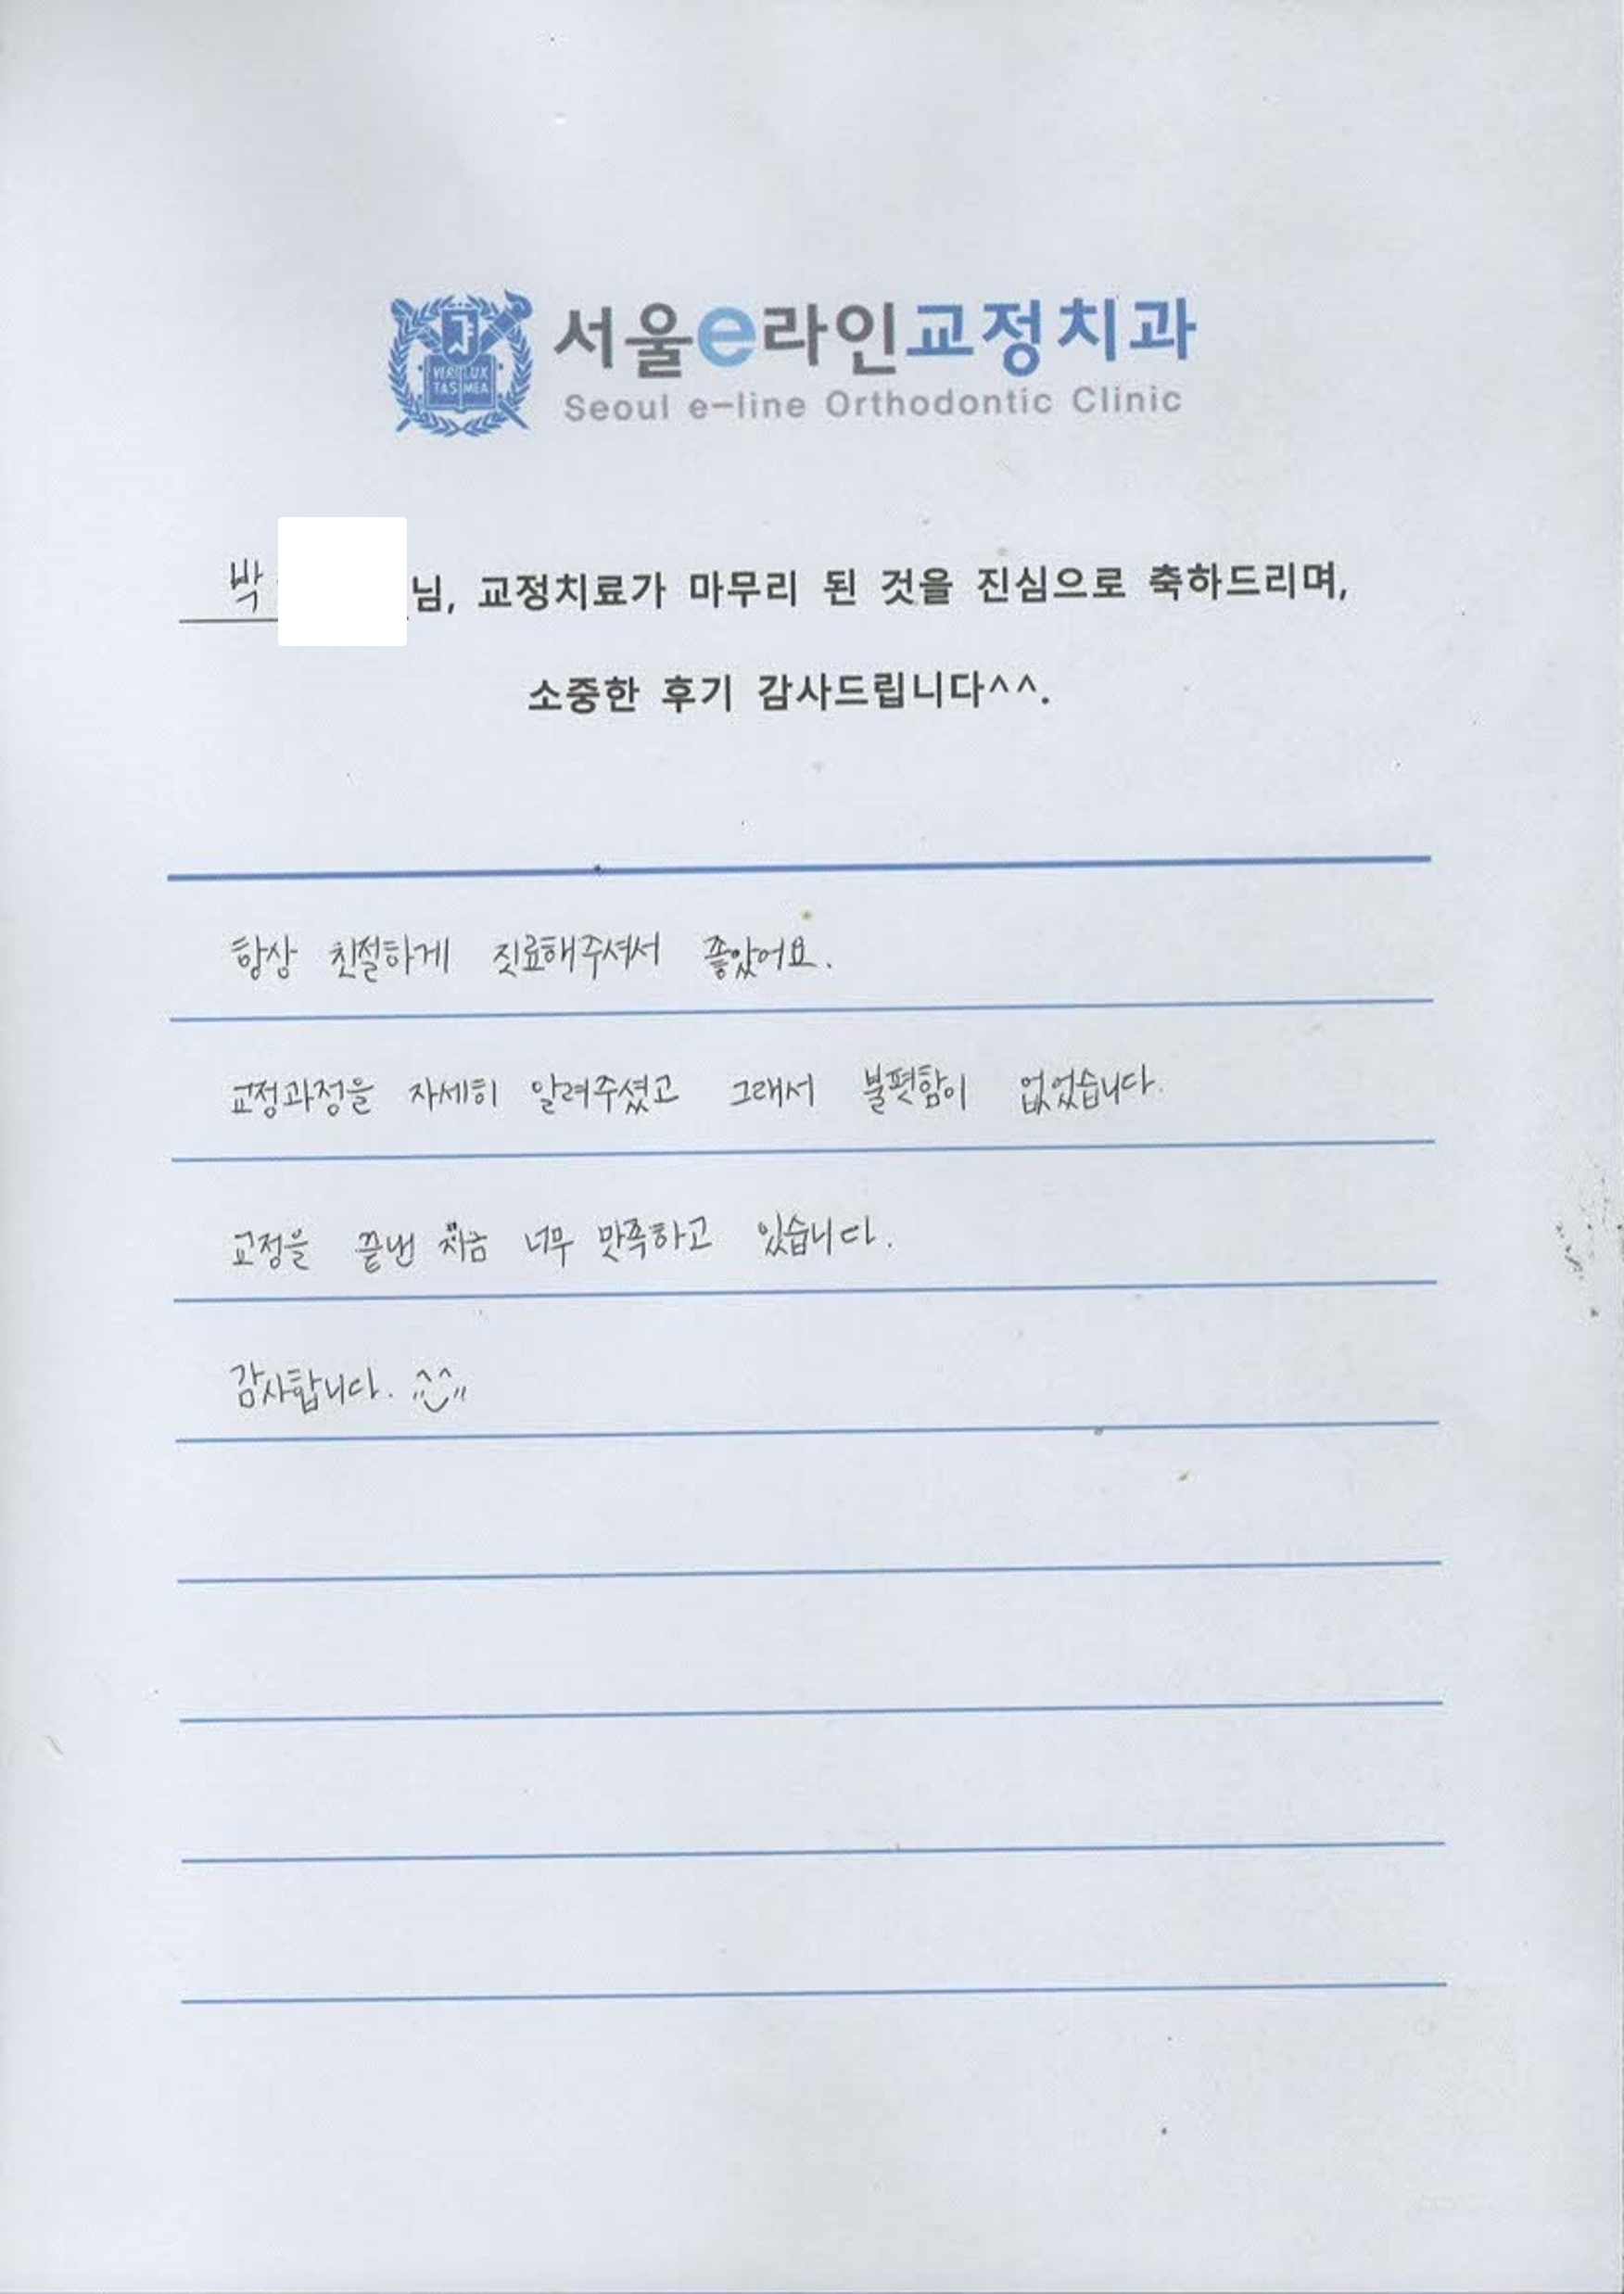 VERI LUX
TAS MEA
서울e라인교정치과
Seoul e-line Orthodontic Clinic
박 님, 교정치료가 마무리 된 것을 진심으로 축하드리며,
소중한 후기 감사드립니다^^.
항상 친절하게 진료해주셔서 좋았어요.
교정과정을 자세히 알려주셨고 그래서 불편함이 없었습니다.
교정을 끝낸 지금 너무 만족하고 있습니다.
감사합니다.